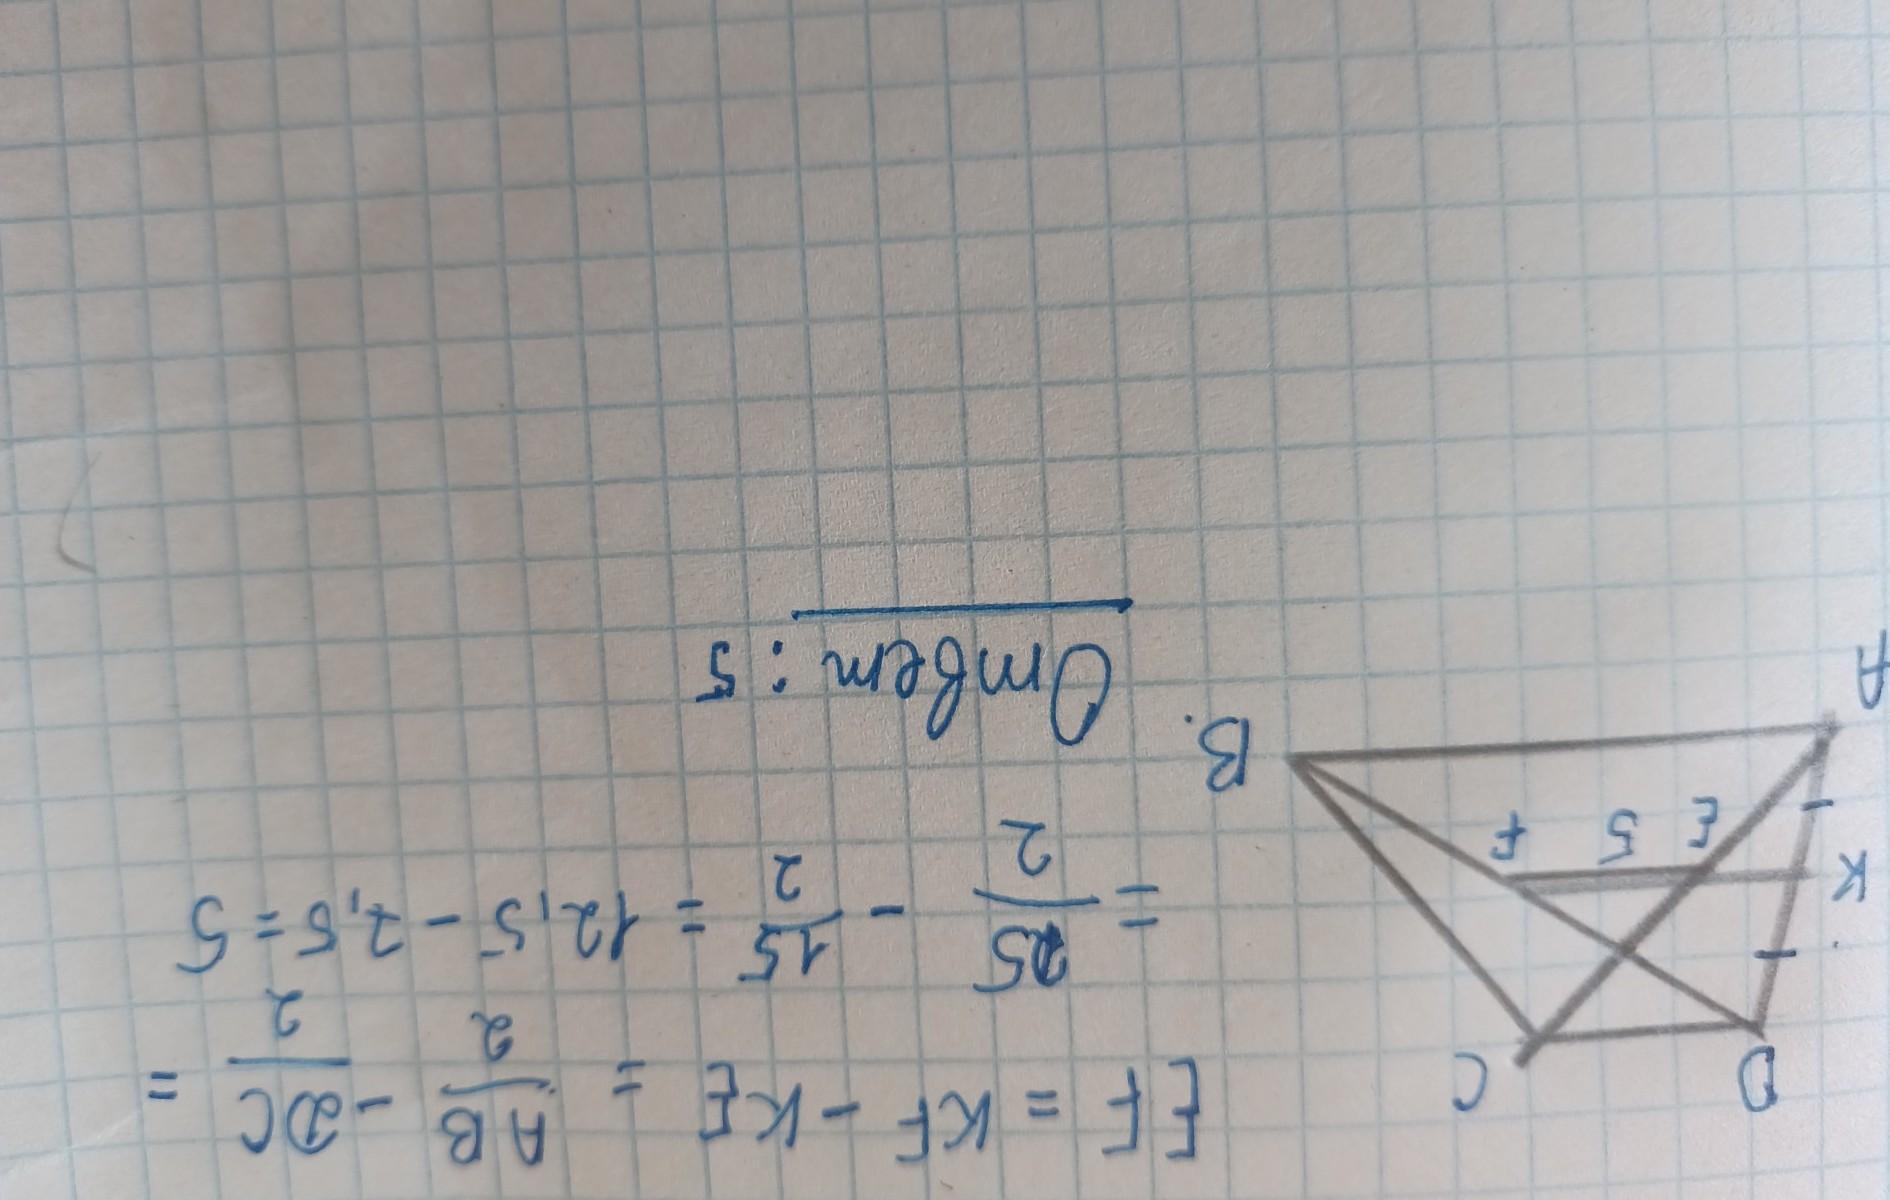 EF = KF - KE = AB/2 - DC/2 =
= 25/2 - 15/2 = 12,5 - 7,5 = 5
Ответ: 5
D C
K E 5 F
A B.